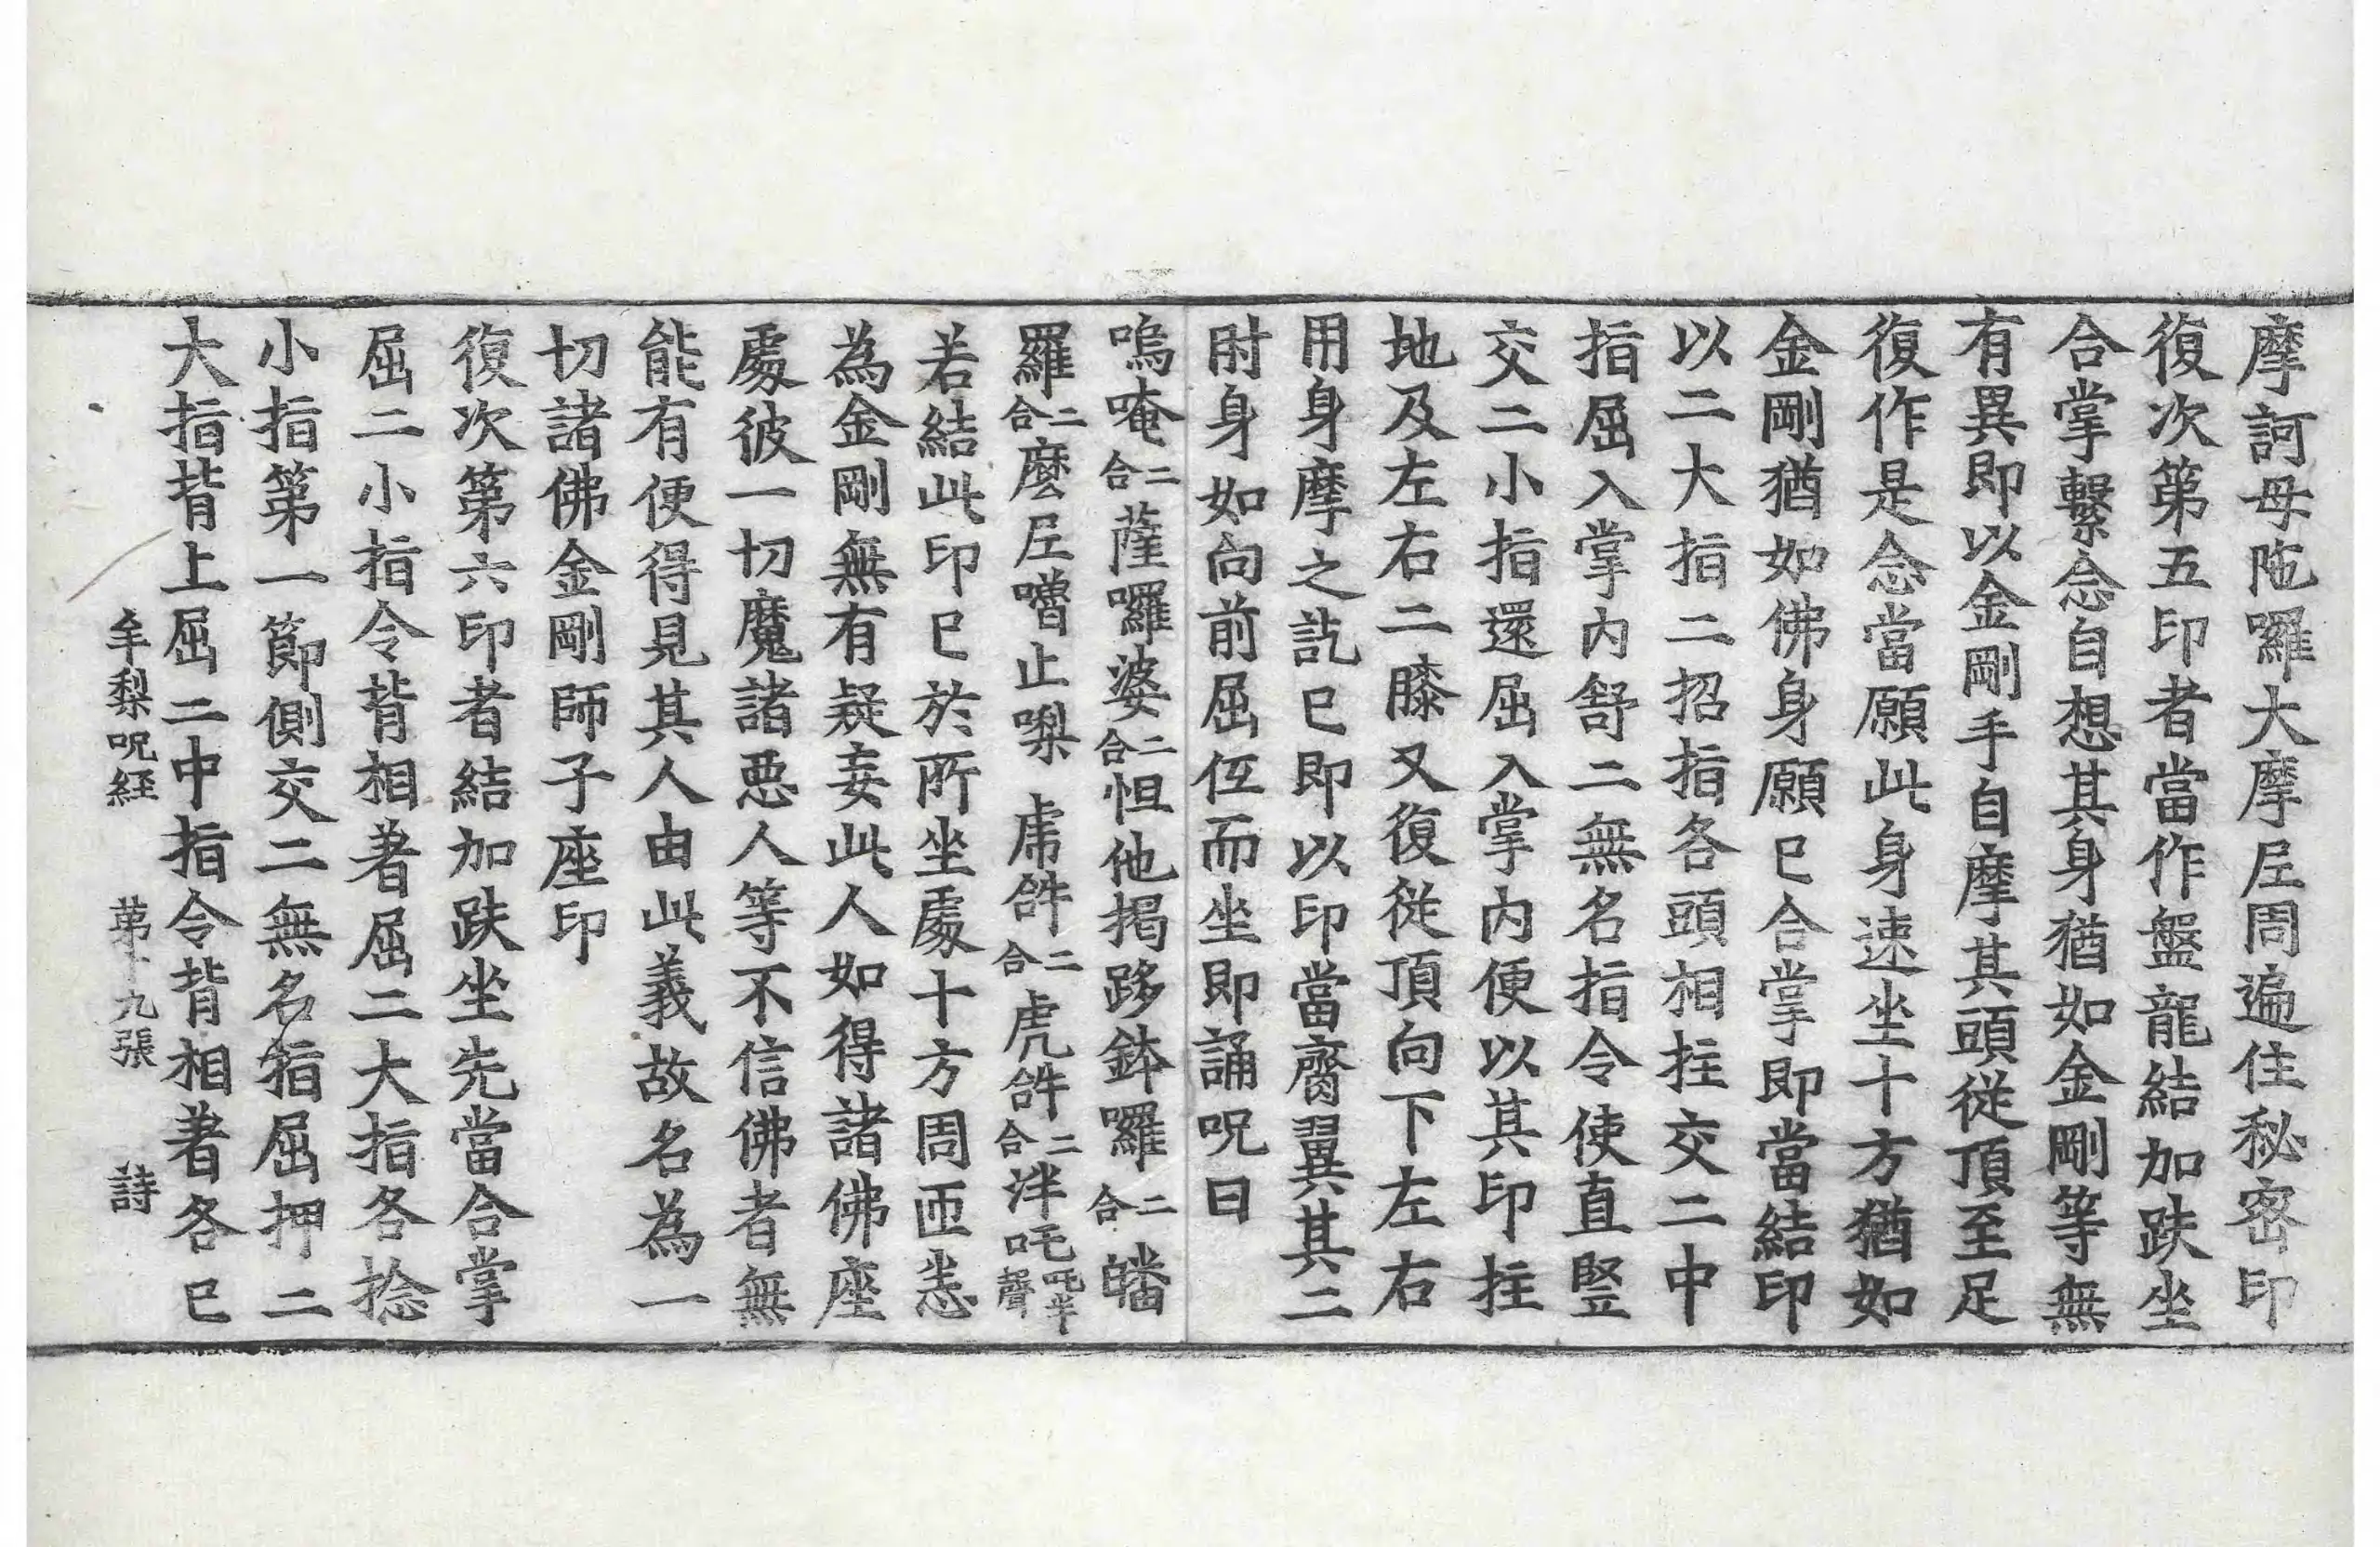 摩訶母陁囉大摩𡰱周遍住秘密印
復次第五印者當作盤龍結加趺坐
合掌繫念自想其身猶如金剛等無
有異即以金剛手自摩其頭從頂至足
復作是念當願此身速坐十方猶如
金剛猶如佛身願已合掌即當結印
以二大指二招指各頭相拄交二中
指屈入掌內舒二無名指令使直竪
交二小指還屈入掌內便以其印拄
地及左右二膝又復從頂向下左右
用身摩之訖已即以印當齊翼其二
肘身如向前屈伍而坐即誦呪曰
嗚唵二合薩囉婆二合怛他揭跢鉢囉二合皤
羅二合麼𡰱嚕止㗚虎𤙖二合虎𤙖二合泮吒吒半聲
若結此印已於所坐處十方周匝悉
為金剛無有疑妄此人如得諸佛座
處彼一切魔諸惡人等不信佛者無
能有便得見其人由此義故名為一
切諸佛金剛師子座印
復次第六印者結加趺坐先當合掌
屈二小指令背相著屈二大指各捻
小指第一節側交二無名指屈押二
大指背上屈二中指令背相著各已
牟梨呪経 苐十九張 詩